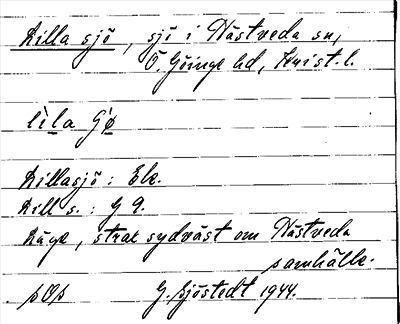 Lilla sjö, sjö i Nästveda sn,
Ö. Göinge hd, Krist. l.
lìla Gø̀
Lillasjö: Ek.
Lill s.: G 9.
Läge, strax sydväst om Nästveda
samhälle.
G. Sjöstedt 1944.